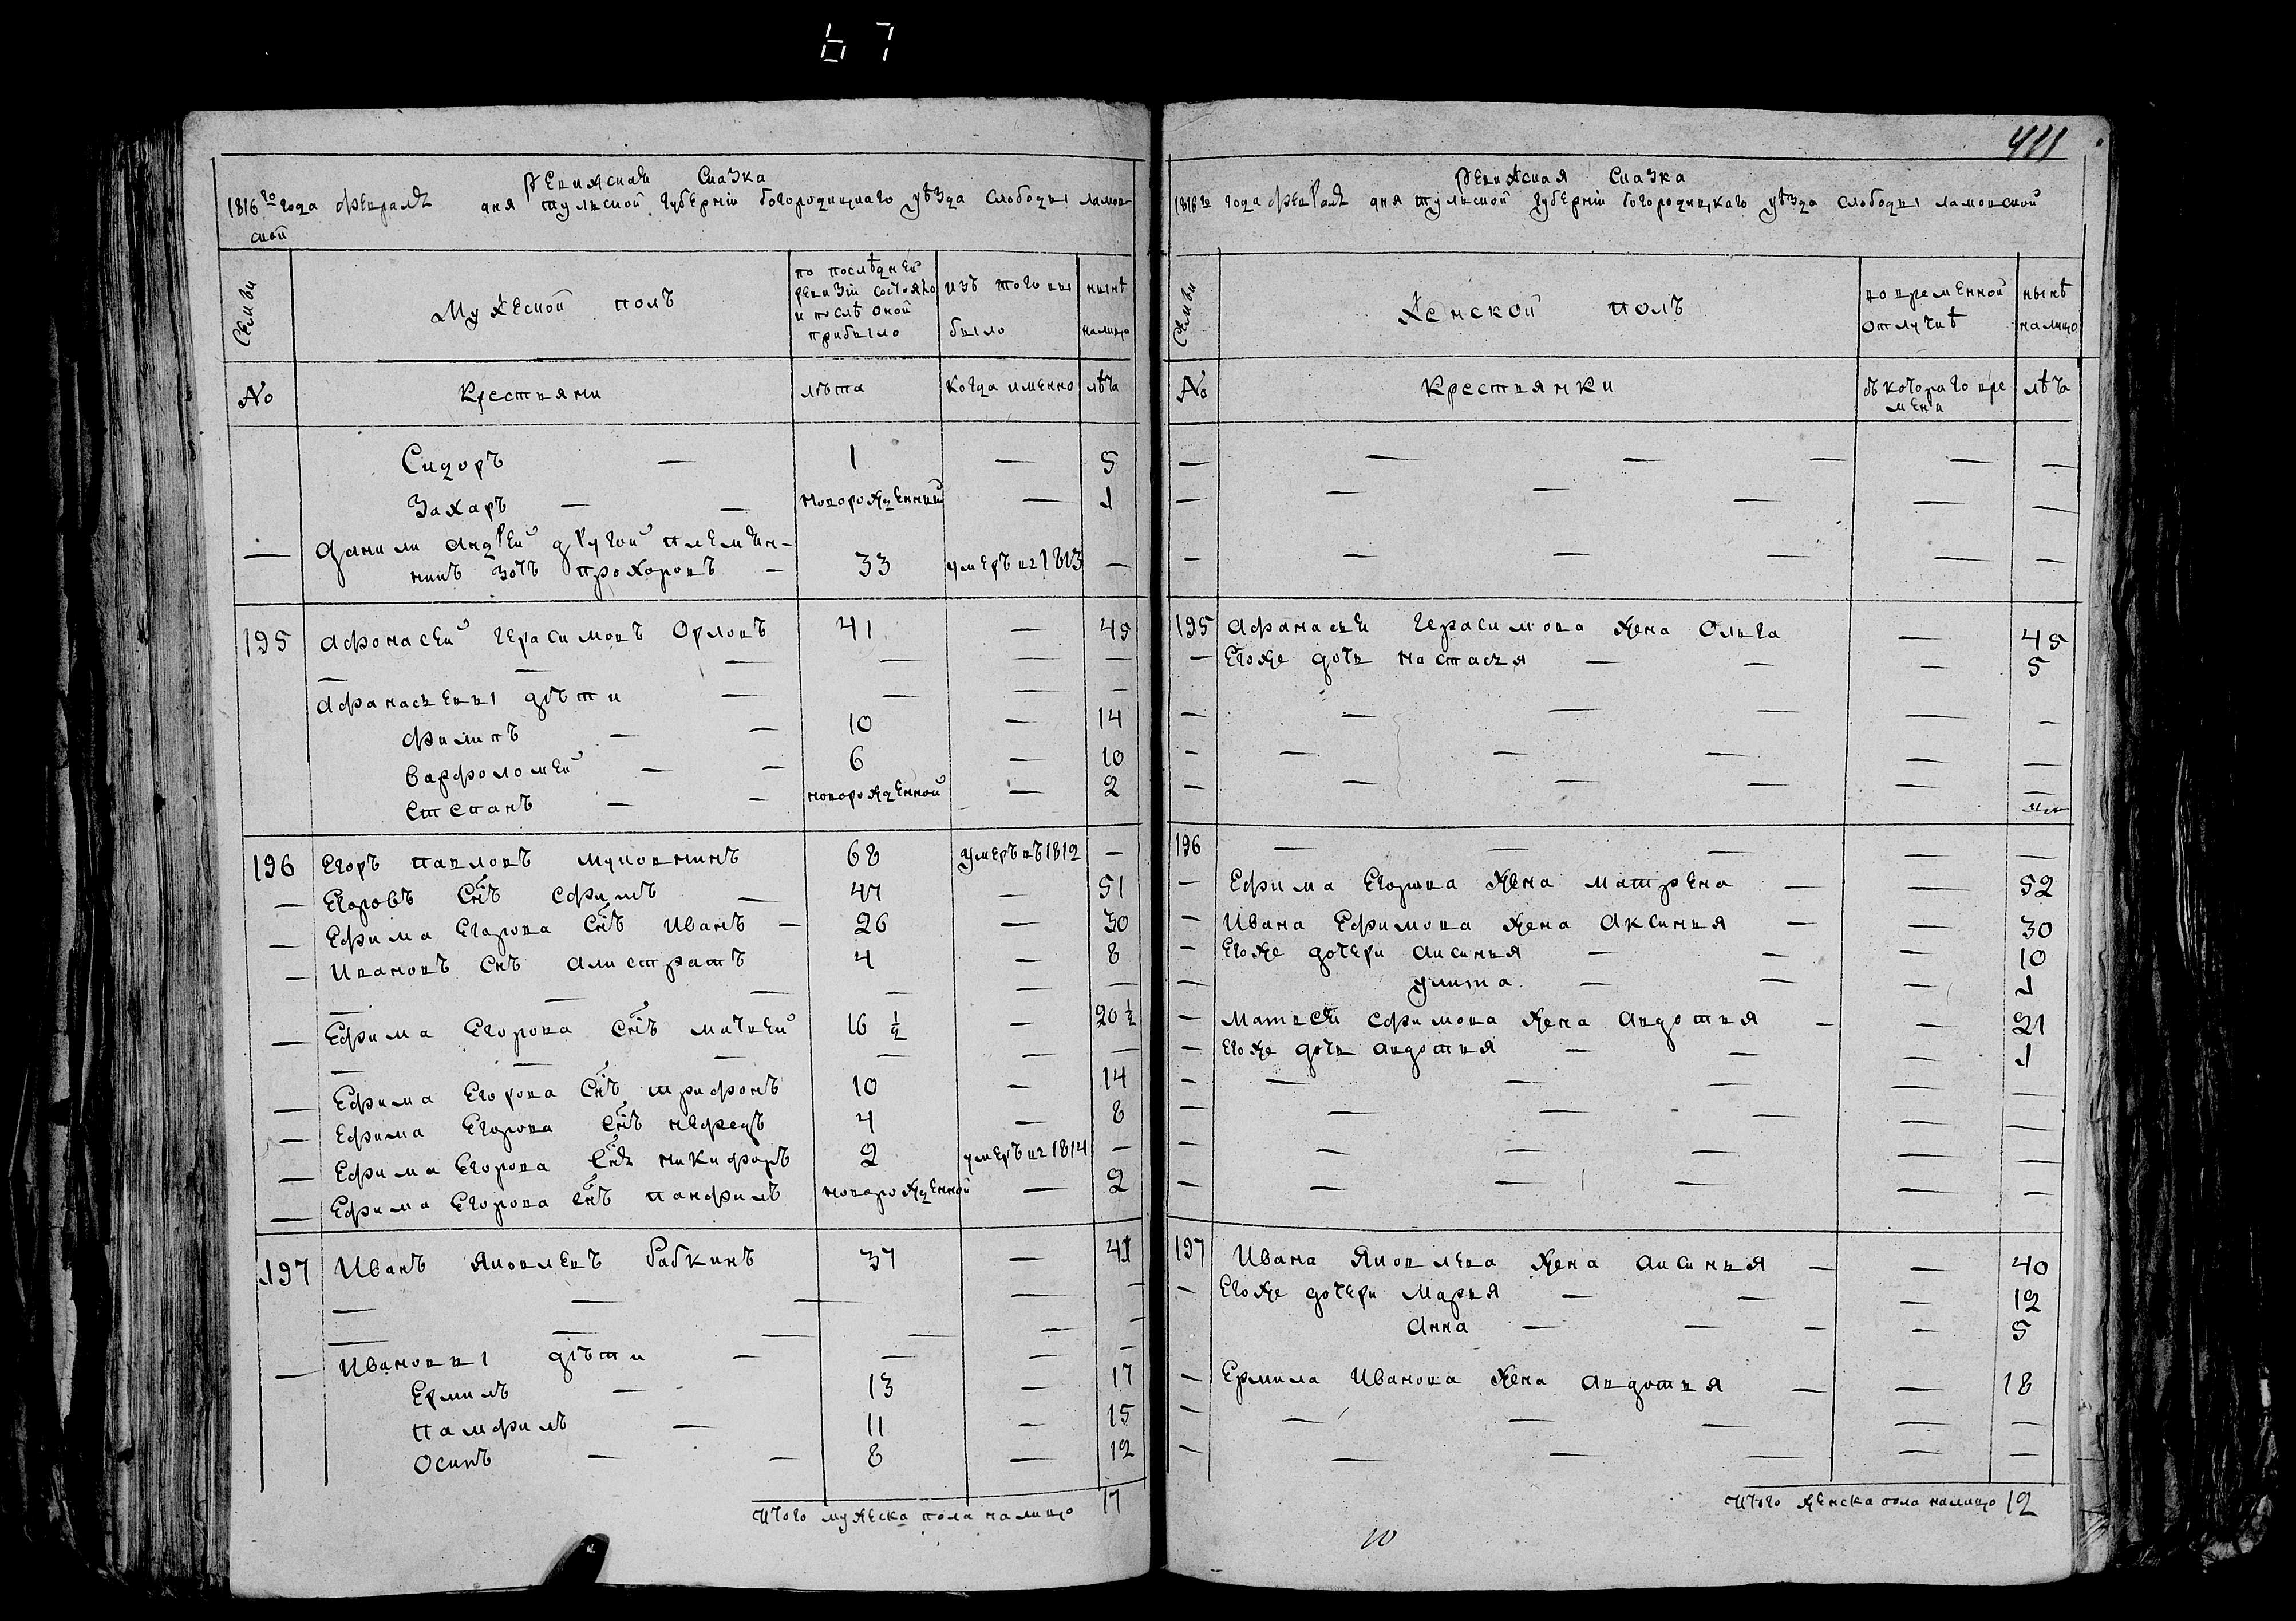 67
Ревижская Сказка
1816го года февраля дня тульской губернiи богородицкаго уѣзда слободы ламов
ской
Семьи
Мужеской полъ
по послѣдней
ревизiи состояло
и послѣ оной
прибыло
изъ того вы
было
нынѣ
налицо
№
Крестьяни
лѣта
Когда именно
лѣта
Сидоръ — 1 — 5
Захаръ — — новорожденный — 1
— Данилы Андреи другой племян-
никъ Зотъ Прохоровъ — 33 умеръ въ 1813 —
195 Афонасей Герасимовъ Орловъ 41 — 45
— — — — — —
Афанасьевы дѣти — — — —
Филипъ — — 10 — 14
Варфоломей — — 6 — 10
Степанъ — — новорожденной — 2
196 Егоръ Павловъ Муковнинъ 68 умеръ въ 1812 —
— Егоровъ Снъ Ефимъ — 47 — 51
— Ефима Егарова Снъ Иванъ — 26 — 30
— Ивановъ Снъ Алистратъ 4 — 8
— — — — — —
— Ефима Егорова Снъ Матвей 16 1/2 — 20 1/2
— — — — — —
— Ефима Егорова Снъ Трифонъ 10 — 14
— Ефима Егорова Снъ Нефедъ 4 — 8
— Ефима Егорова Снъ Никифоръ 2 умеръ въ 1814 —
— Ефима Егорова Снъ Панфилъ новорожденной — 2
197 Иванъ Яковлевъ Бабкинъ 37 — 41
— — — — —
— — — — — —
— Ивановы дѣти — — — —
Ермилъ — 13 — 17
Памфилъ — 11 — 15
Осипъ — — 8 — 12
Итого мужеска пола налицо 17
411
Ревижская Сказка
1816го года февраля дня тульской губернiи богородицкаго уѣзда слободы ламовской
Семьи
Женской полъ
во временной
отлучкѣ
нынѣ
налицо
№
Крестьянки
съ котораго вре
мени
лѣта
— — — — — —
— — — — — —
— — — — — —
195 Афанасья Герасимова жена Ольга — 45
— Егоже дочь Настасья — — — 5
— — — — — —
— — — — — —
— — — — — —
196 — — — — —
— Ефима Егорова жена Матрена — — 52
— Ивана Ефимова жена Аксинья — — 30
— Егоже дочери Аксинья — — — 10
— Улита — — — 1
— Матвея Ефимова жена Авдотья — — 21
— Егоже дочь Авдотья — — — 1
— — — — — —
— — — — — —
— — — — — —
— — — — — —
197 Ивана Яковлева жена Аксинья — — 40
— Егоже дочери Марья — — — 12
Анна — — — — 5
— Ермила Иванова жена Авдотья — — 18
— — — — — —
— — — — — —
Итого женска пола налицо 12
10